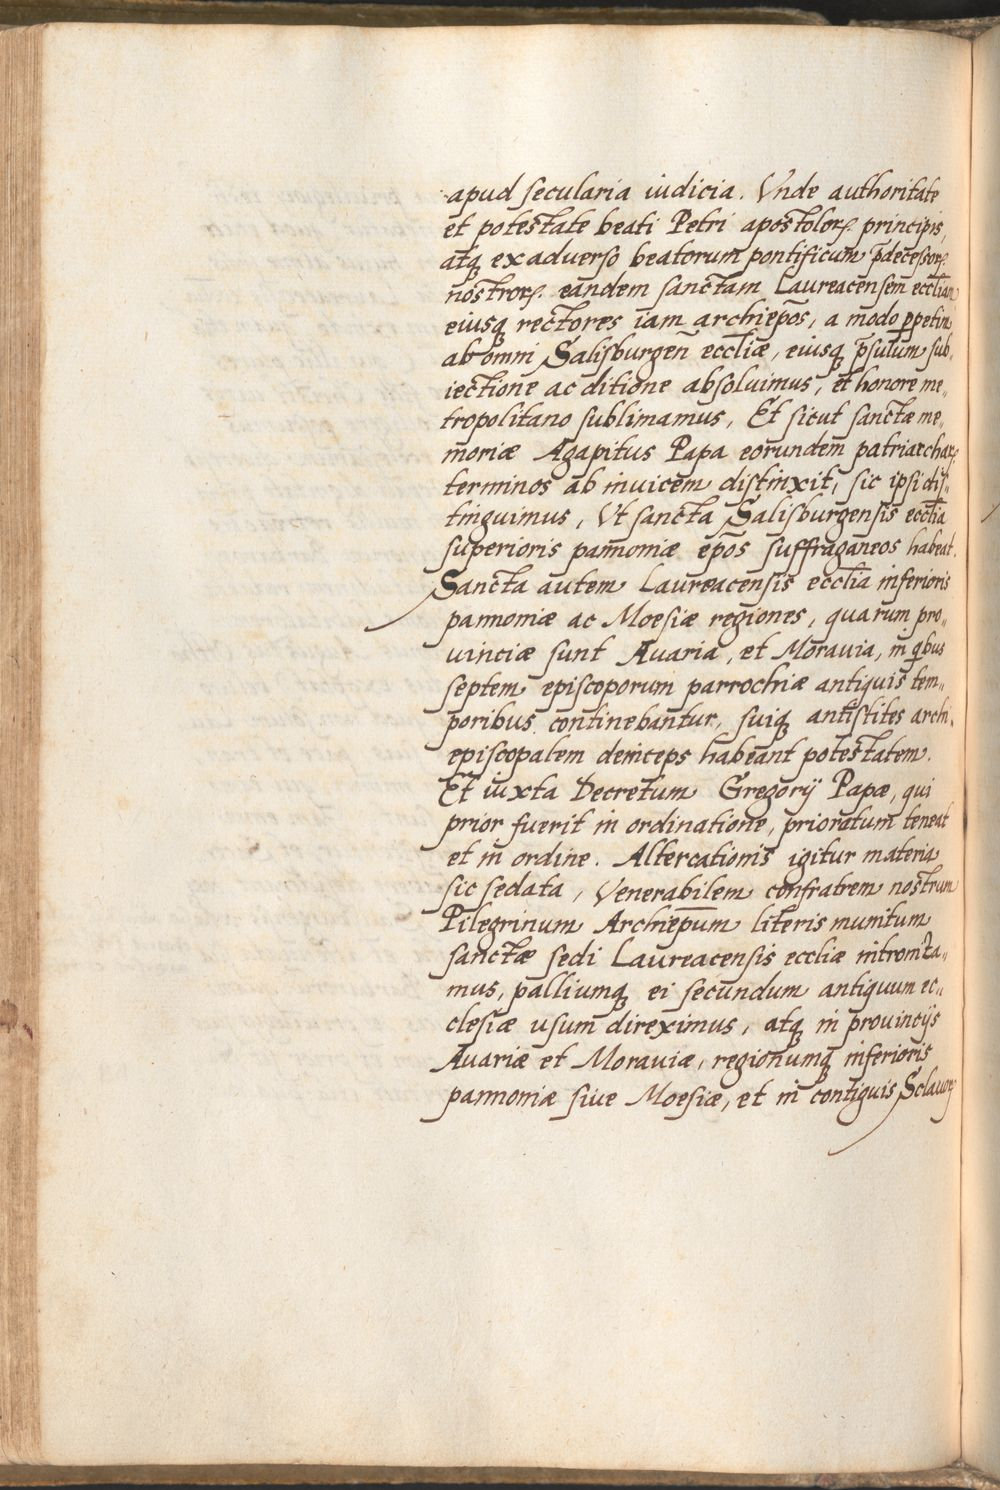 apud secularia iudicia. Vnde authoritate
et potestate beati Petri apostoloꝝ principis,
atqꝫ ex aduerso beatorum pontificum p̄decessoꝝ
nostroꝝ. eandem sanctam Laureacensem eccliam
eiusqꝫ rectores iam archiepos, a modo ꝑpetim
ab omni Salisburgen̄ eccliæ, eiusqꝫ p̄sulum sub„
iectione ac ditione absoluimus, et honore me„
tropolitano sublimamus, Et sicut sanctæ me„
moriæ Agapitus Papa eorundem patriarchaꝝ
terminos ab inuicem distinxit, sic ipsi dis„
tinguimus, Vt sancta Salisburgensis ecclia
superioris pannoniæ epos suffraganeos habeat.
Sancta autem Laureacensis ecclia inferioris
pannoniæ ac Moesiæ regiones, quarum pro„
uinciæ sunt Auaria, et Morauia, in qibus
septem episcoporum parrochiæ antiquis tem„
poribus continebantur, suiqꝫ antistites archi„
episcopalem deinceps habeant potestatem.
Et iuxta Decretum Gregorij Papæ, qui
prior fuerit in ordinatione, prioratum teneat
et in ordine. Altercationis igitur materia
sic sedata, Venerabilem confratrem nostrum
Pilegrinum Archiepum literis munitum
sanctæ sedi Laureacensis eccliæ intromita„
mus, palliumqꝫ ei secundum antiquum ec„
clesiæ usum direximus, atqꝫ in prouincijs
Auariæ et Morauiæ, regionumqꝫ inferioris
pannoniæ siue Moesiæ, et in contiguis Sclauoꝝ